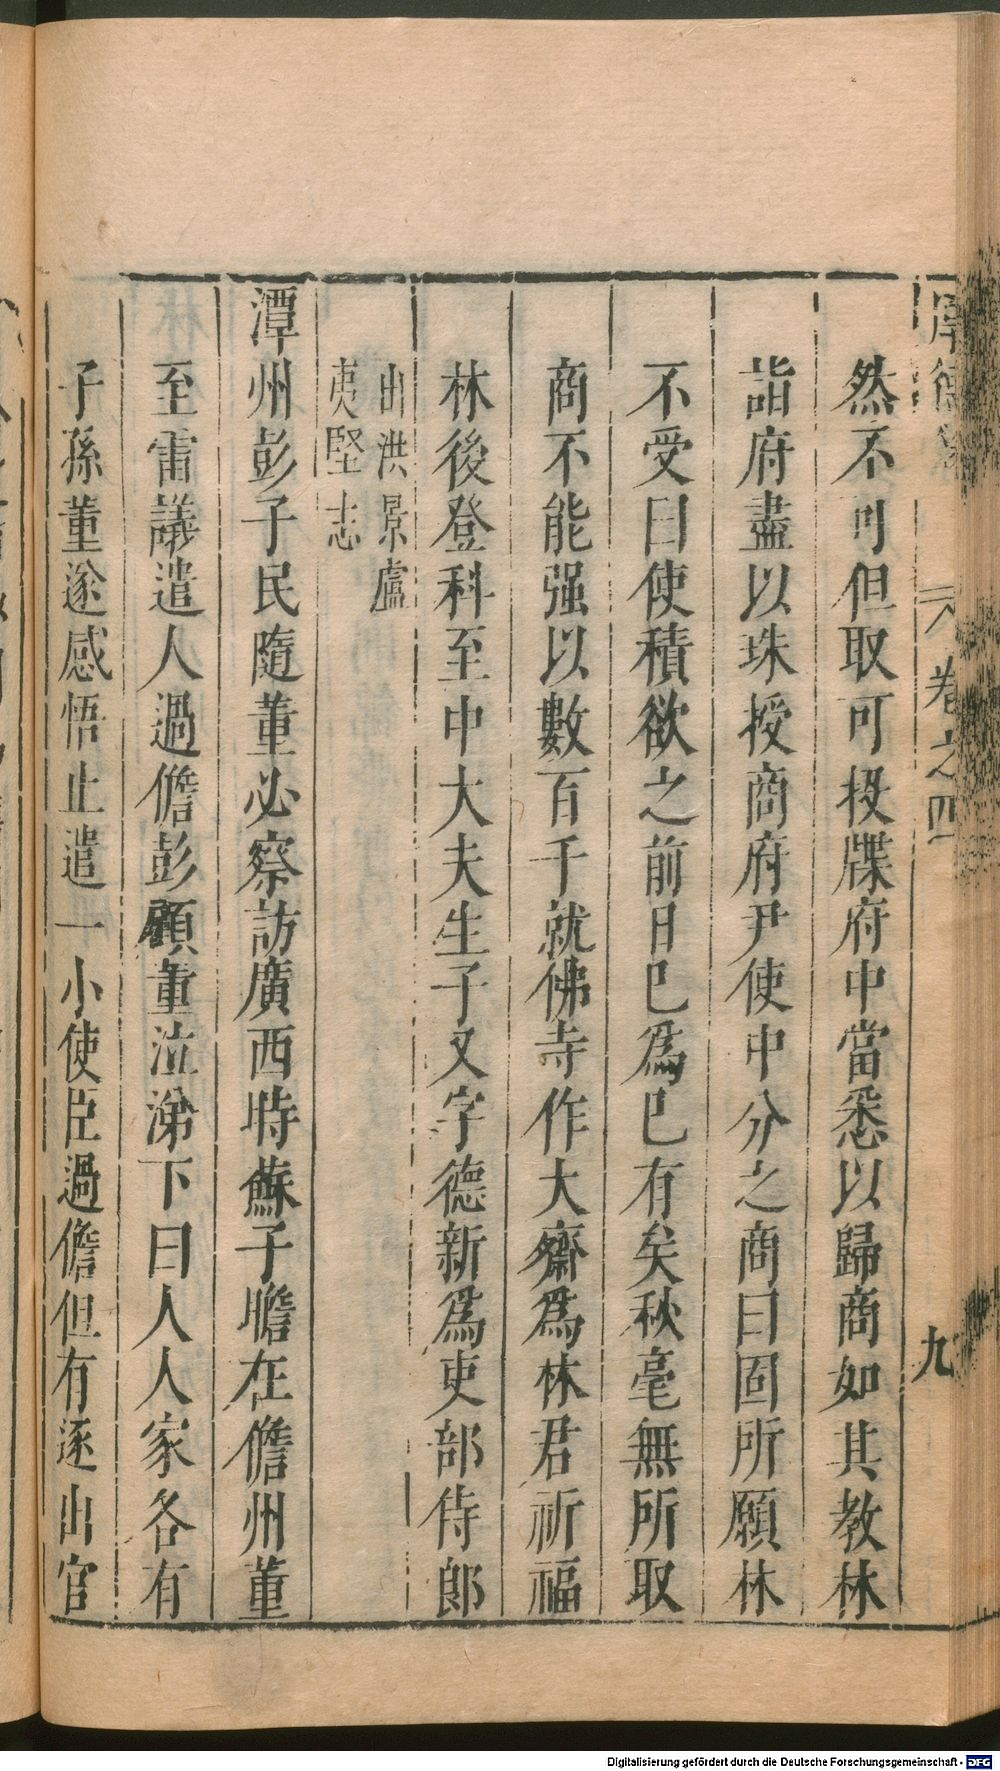 厚德
卷之四
九
然不可但取可投牒府中當悉以歸商如其教林
詣府盡以珠授商府尹使中分之商曰固所願林
不受曰使積欲之前日已爲已有矣秋毫無所取
商不能强以數百千就佛寺作大齋爲林君祈福
林後登科至中大夫生子又字德新爲吏部侍郎
出洪景盧
夷堅志
潭州彭子民隨董必察訪廣西時蘇子瞻在儋州董
至雷議遣人過儋彭顧董泣涕下曰人人家各有
子孫董遂感悟止遣一小使臣過儋但有逐出官
Digitalisierung gefördert durch die Deutsche Forschungsgemeinschaft - DFG